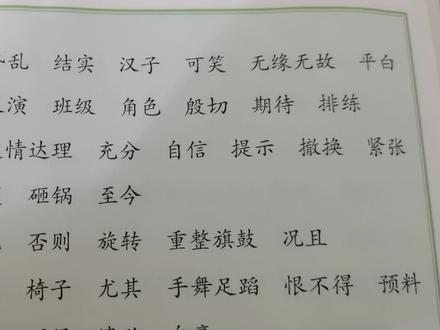 乱 结实 汉子 可笑 无缘无故 平白
演 班级 角色 殷切 期待 排练
情达理 充分 自信 提示 撤换 紧张
砸锅 至今
否则 旋转 重整旗鼓 况且
椅子 尤其 手舞足蹈 恨不得 预料